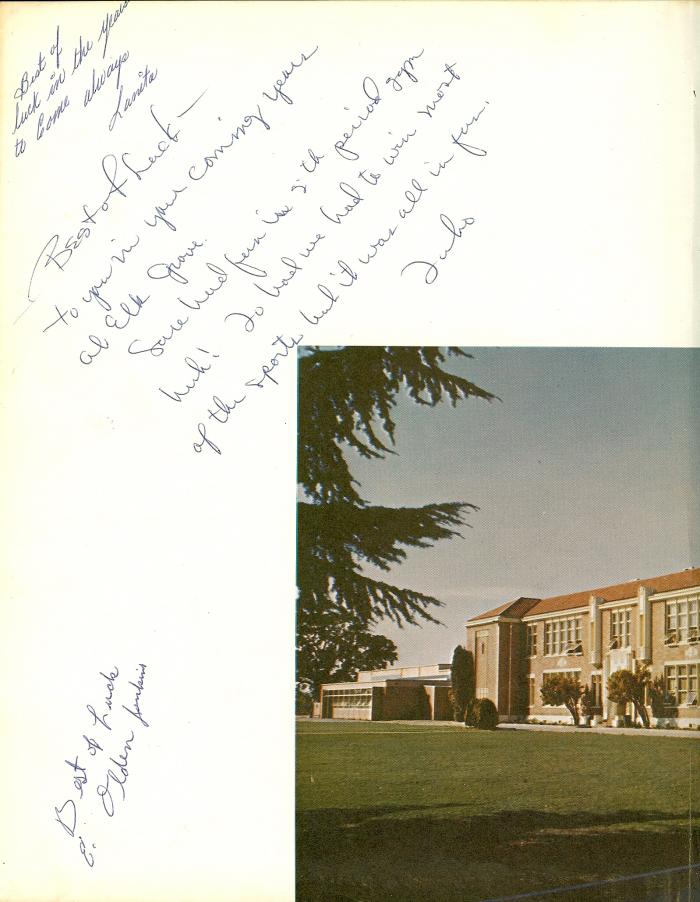 Best of
luck in the years
to Come always
Lanita
Best of Luck —
to you in your coming years
at Elk Grove.
Sure had fun in 5th period gym
huh! To bad we had to win most
of the sports but it was all in fun.
Best of Luck
Olden Jenkins